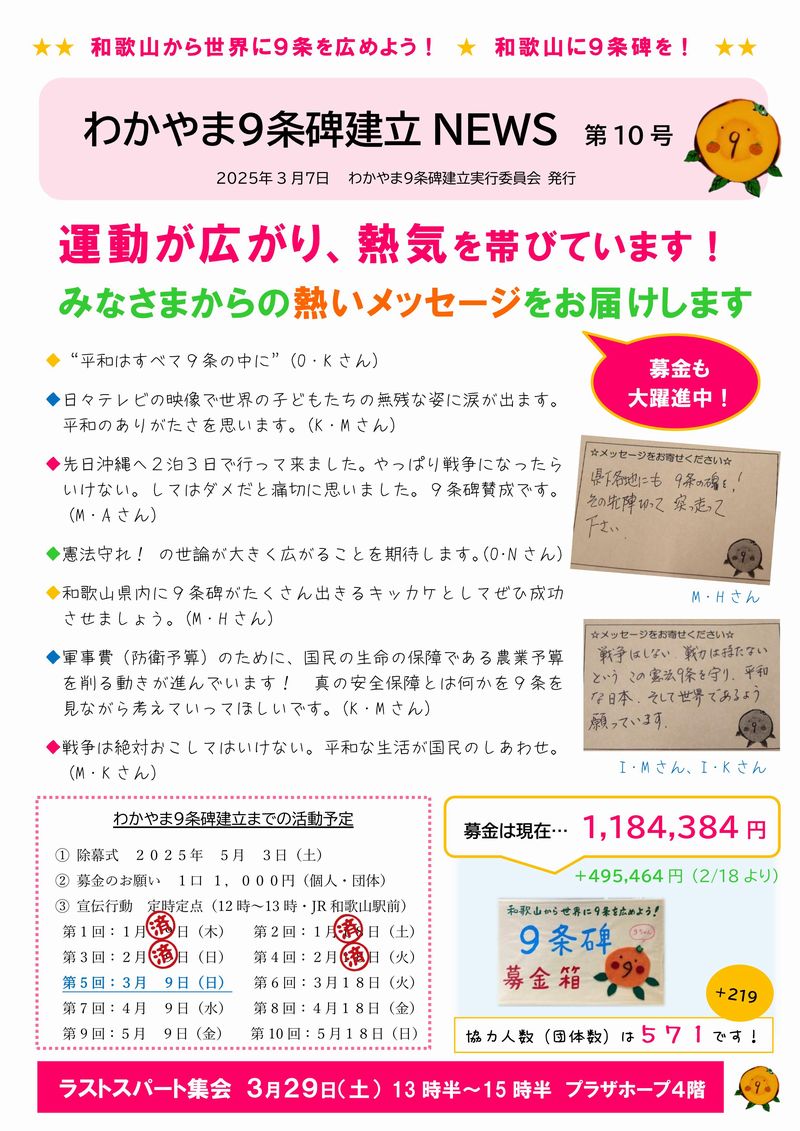 ★★ 和歌山から世界に９条を広めよう！ ★ 和歌山に９条碑を！ ★★
わかやま９条碑建立 NEWS 第10号
2025年３月7日 わかやま９条碑建立実行委員会 発行
9
運動が広がり、熱気を帯びています！
みなさまからの熱いメッセージをお届けします
◆“平和はすべて９条の中に”（O・Kさん）
◆日々テレビの映像で世界の子どもたちの無残な姿に涙が出ます。
平和のありがたさを思います。（K・Mさん）
◆先日沖縄へ２泊３日で行って来ました。やっぱり戦争になったら
いけない。してはダメだと痛切に思いました。９条碑賛成です。
（M・Aさん）
◆憲法守れ！ の世論が大きく広がることを期待します。（O・Nさん）
◆和歌山県内に９条碑がたくさん出きるキッカケとしてぜひ成功
させましょう。（M・Hさん）
◆軍事費（防衛予算）のために、国民の生命の保障である農業予算
を削る動きが進んでいます！ 真の安全保障とは何かを９条を
見ながら考えていってほしいです。（K・Mさん）
◆戦争は絶対おこしてはいけない。平和な生活が国民のしあわせ。
（M・Kさん）
募金も
大躍進中！
☆メッセージをお寄せください☆
県下各地にも ９条の碑を！
その先陣切って 突っ走って
下さい
9
M・Hさん
☆メッセージをお寄せください☆
戦争はしない、戦力は持たない
という この憲法９条を守り、平和
な日本、そして世界であるよう
願っています。
9
I・Mさん、I・Kさん
わかやま９条碑建立までの活動予定
① 除幕式 ２０２５年 ５月 ３日（土）
② 募金のお願い １口 １，０００円（個人・団体）
③ 宣伝行動 定時定点（12時～13時・JR和歌山駅前）
第１回：１月 済 日（木） 第２回：１月 済 日（土）
第３回：２月 済 日（日） 第４回：２月 済 日（火）
第５回：３月 ９日（日） 第６回：３月１８日（火）
第７回：４月 ９日（水） 第８回：４月１８日（金）
第９回：５月 ９日（金） 第10回：５月１８日（日）
募金は現在… 1,184,384 円
＋495,464円（2/18より）
和歌山から世界に９条を広めよう！
９条碑
募金箱
9
＋219
協力人数（団体数）は５７１です！
ラストスパート集会 ３月29日（土）13時半～15時半 プラザホープ４階
9